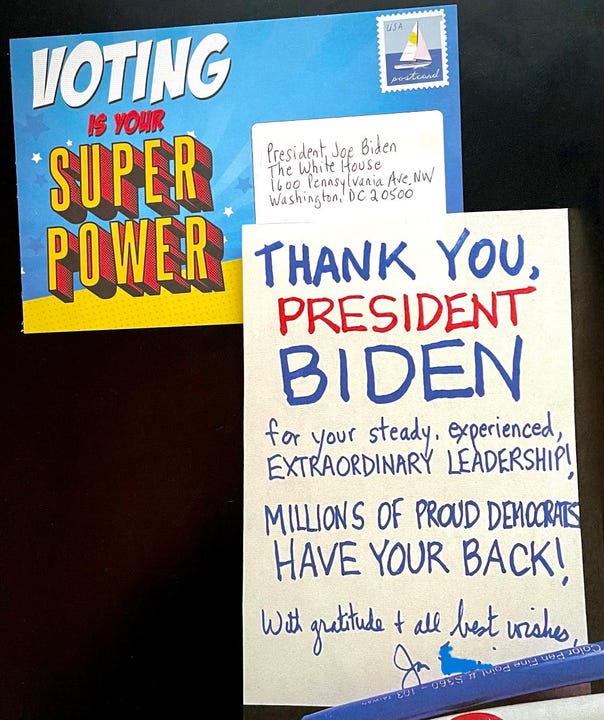 VOTING
IS YOUR
SUPER
POWER
USA
postcard
President Joe Biden
The White House
1600 Pennsylvania Ave, NW
Washington, DC 20500
THANK YOU,
PRESIDENT
BIDEN
for your steady, experienced,
EXTRAORDINARY LEADERSHIP!
MILLIONS OF PROUD DEMOCRATS
HAVE YOUR BACK!
With gratitude + all best wishes,
Color Pen Fine Point # S360 - 103 TAIWAN